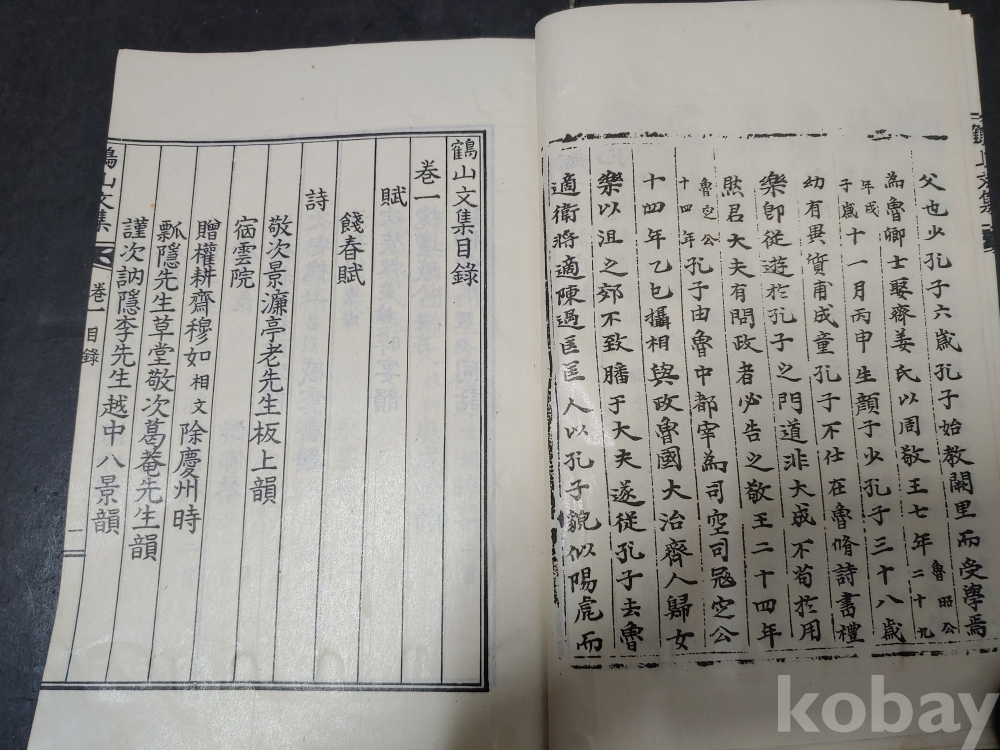 父也少孔子六歲孔子始教闕里而受學焉
為魯卿士娶齊姜氏以周敬王七年魯昭公二十九
年戌子歲十一月丙申生顏子少孔子三十八歲
幼有異質甫成童孔子不仕在魯脩詩書禮
樂卽從遊於孔子之門道非大成不苟於用
然君大夫有問政者必告之敬王二十四年
魯定公十四年孔子由魯中都宰為司空司冦定公
十四年乙巳攝相與政魯國大治齊人歸女
樂以沮之郊不致膰于大夫遂從孔子去魯
適衛將適陳過匡匡人以孔子貌似陽虎而
鶴山文集目錄
卷一
賦
餞春賦
詩
敬次景濂亭老先生板上韻
宿雲院
贈權耕齋穆如相文除慶州時
瓢隱先生草堂敬次葛菴先生韻
謹次訥隱李先生越中八景韻
鶴山文集 卷一 目錄 一
kobay